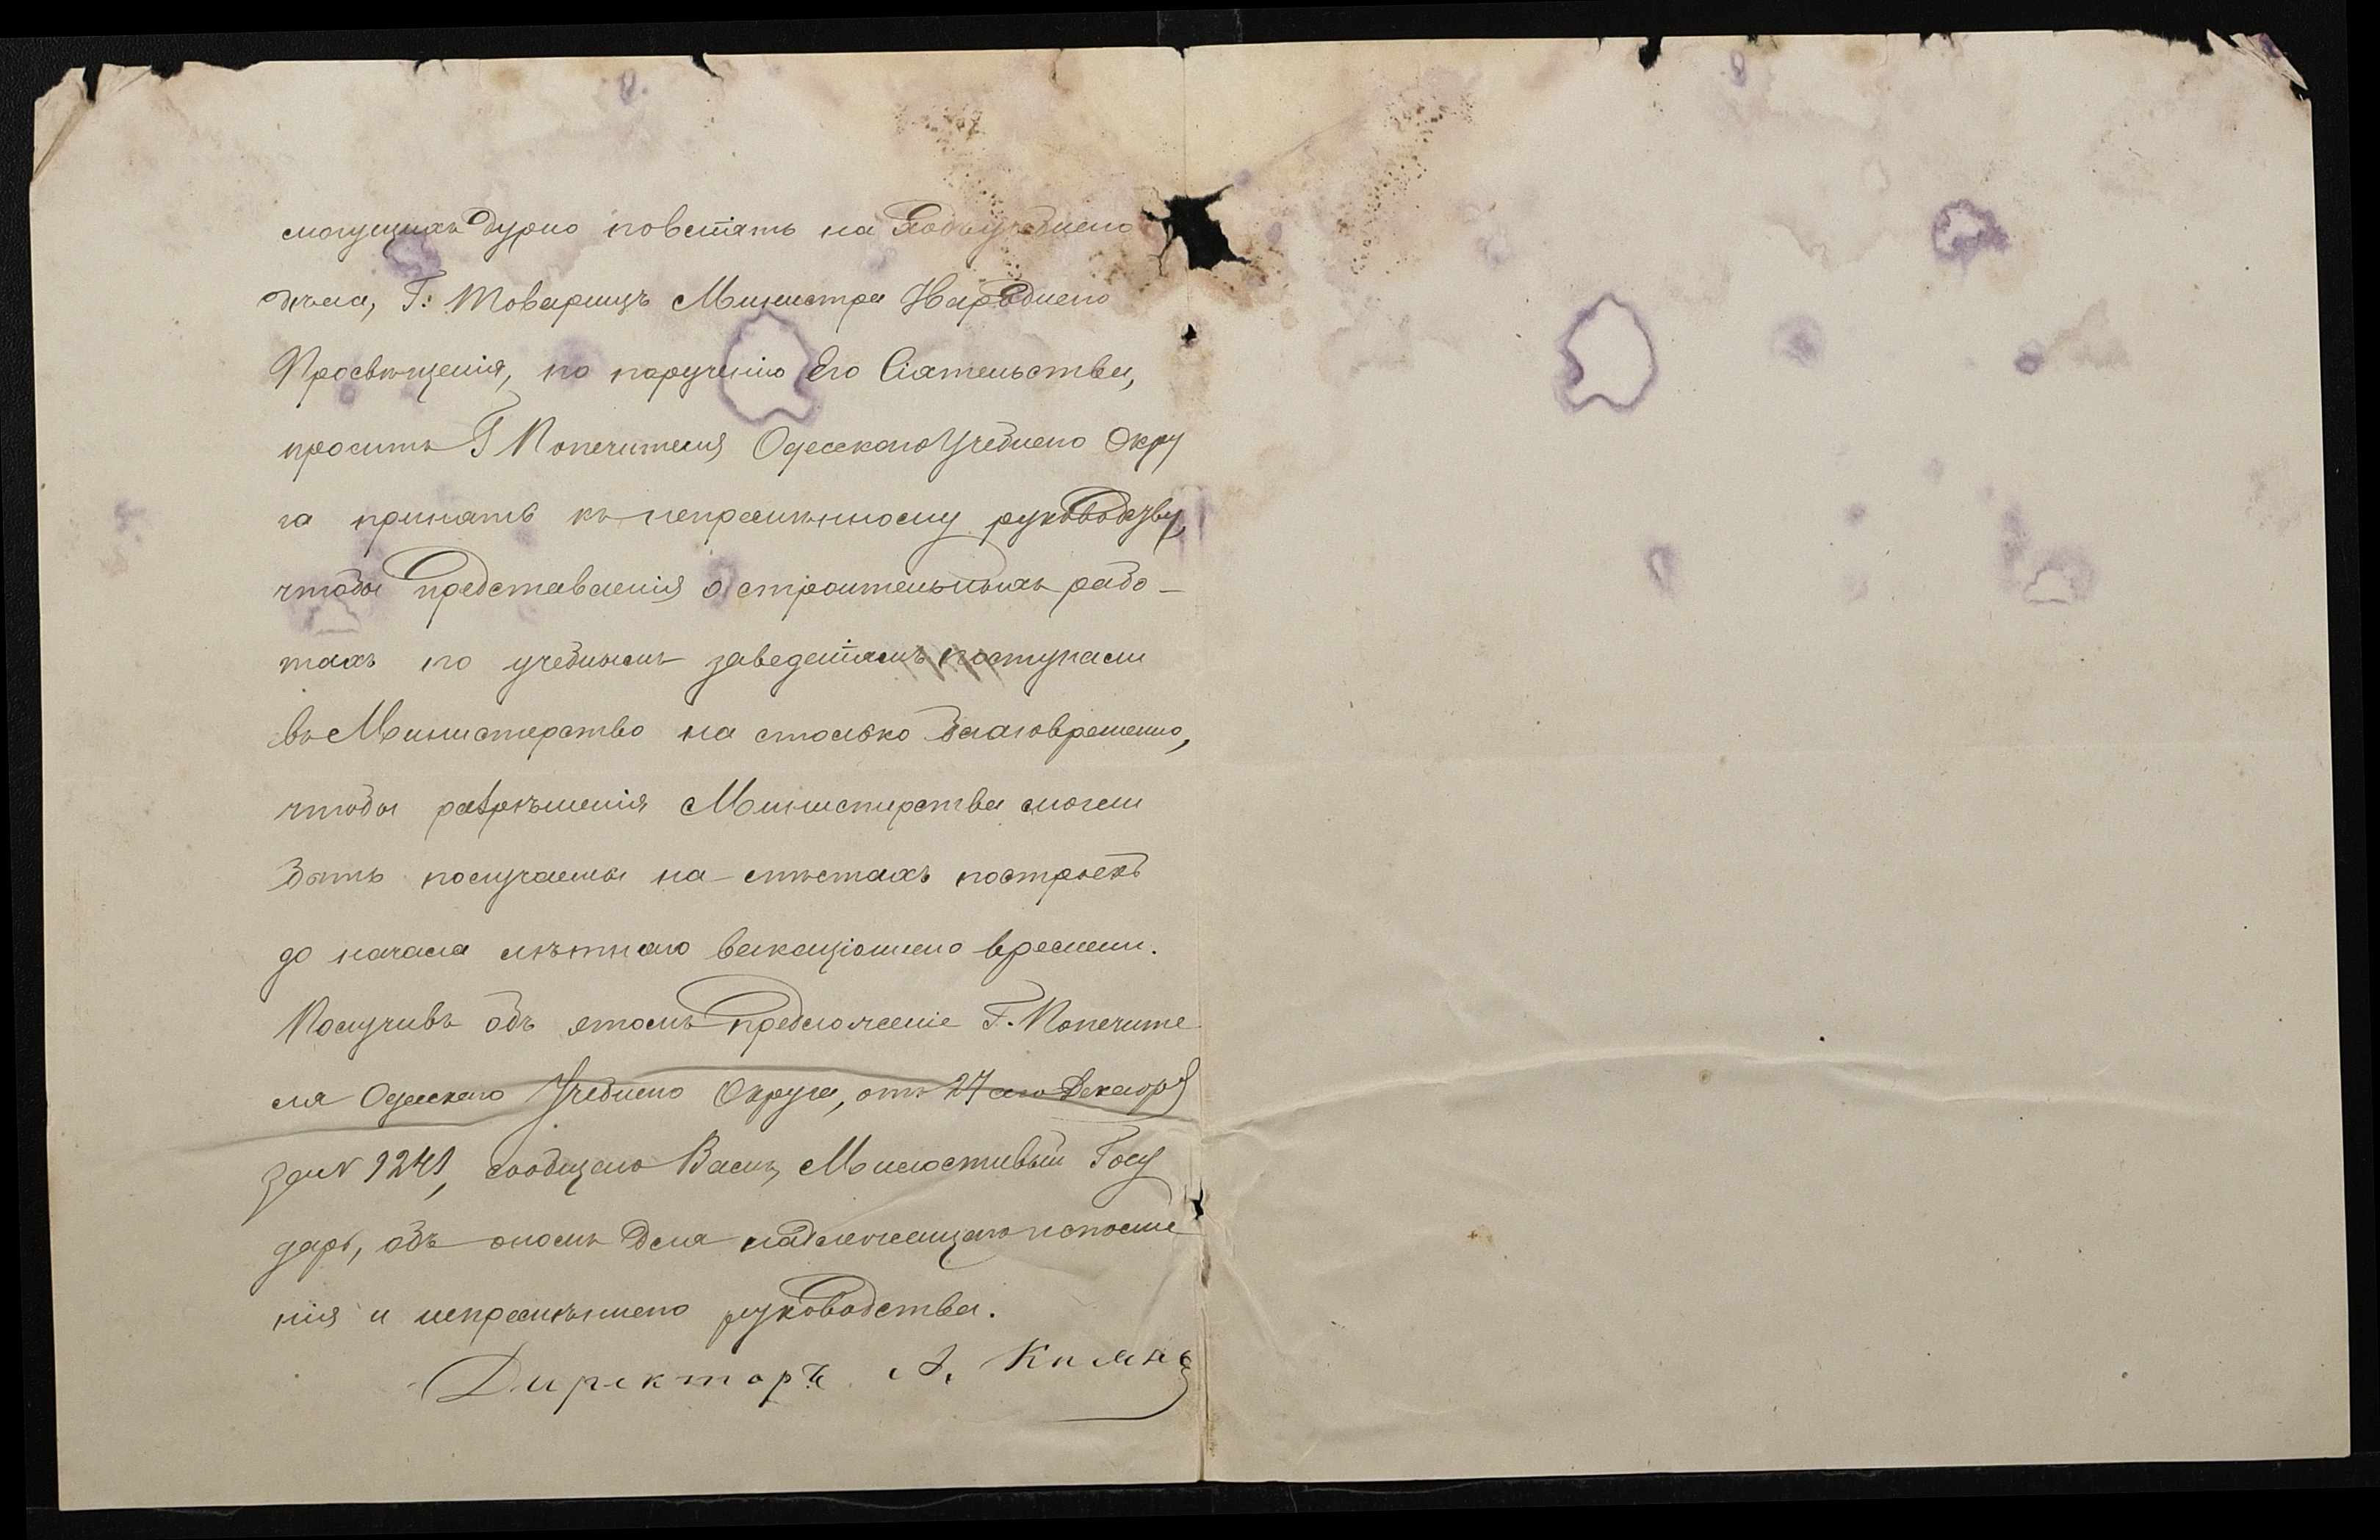 могущихъ дурно повліять на ходъ учебнаго
дѣла, Г. Товарищъ Министра Народнаго
Просвѣщенія, по порученію Его Сіятельства,
проситъ Г Попечителя Одесскаго Учебнаго Окру
га принять къ непремѣнному руководству,
чтобы представленія о строительныхъ рабо-
тахъ по учебнымъ заведеніямъ поступали
въ Министерство на столько благовременно,
чтобы разрѣшенія Министерства могли
быть получаемы на мѣстахъ построекъ
до начала лѣтняго вакаціоннаго времени.
Получивъ объ этомъ предложеніе Г. Попечите
ля Одесскаго Учебнаго Округа, отъ 27 Декабря
за N 9241, сообщаю Вамъ, Милостивый Госу
дарь, объ ономъ для надлежащаго исполне
нія и непремѣннаго руководства.
Директоръ А.